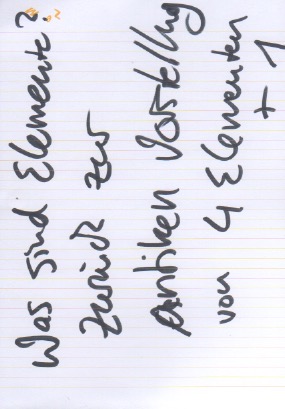 Was sind Elemente?
Zurück zur
antiken Vorstellung
von 4 Elementen
+ 1